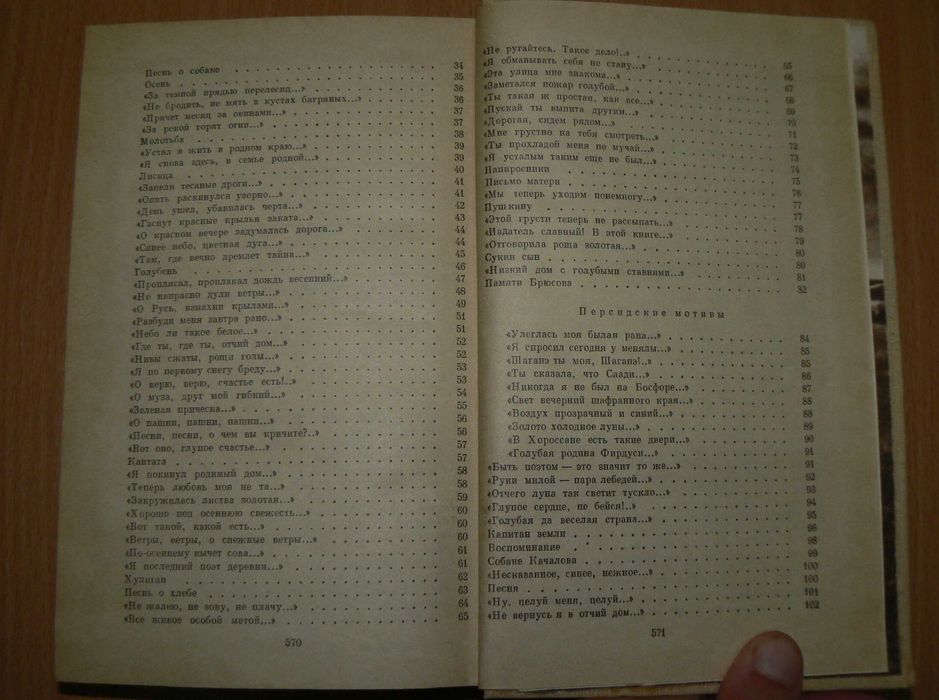 Песнь о собаке . . . 34
Осень . . . 35
«За темной прядью перелесиц...» . . . 36
«Не бродить, не мять в кустах багряных...» . . . 36
«Прячет месяц за овинами...» . . . 37
«За рекой горят огни...» . . . 37
Молотьба . . . 38
«Устал я жить в родном краю...» . . . 39
«Я снова здесь, в семье родной...» . . . 39
Лисица . . . 40
«Запели тесаные дроги...» . . . 41
«Опять раскинулся узорно...» . . . 41
«День ушел, убавилась черта...» . . . 42
«Гаснут красные крылья заката...» . . . 43
«О красном вечере задумалась дорога...» . . . 44
«Синее небо, цветная дуга...» . . . 44
«Там, где вечно дремлет тайна...» . . . 45
Голубень . . . 46
«Проплясал, проплакал дождь весенний...» . . . 47
«Не напрасно дули ветры...» . . . 48
«О Русь, взмахни крылами...» . . . 49
«Разбуди меня завтра рано...» . . . 51
«Небо ли такое белое...» . . . 51
«Где ты, где ты, отчий дом...» . . . 52
«Нивы сжаты, рощи голы...» . . . 52
«Я по первому снегу бреду...» . . . 53
«О верю, верю, счастье есть!..» . . . 53
«О муза, друг мой гибкий...» . . . 54
«Зеленая прическа...» . . . 55
«О пашни, пашни, пашни...» . . . 56
«Песни, песни, о чем вы кричите?..» . . . 56
«Вот оно, глупое счастье...» . . . 57
Кантата . . . 57
«Я покинул родимый дом...» . . . 58
«Теперь любовь моя не та...» . . . 58
«Закружилась листва золотая...» . . . 59
«Хорошо под осеннюю свежесть...» . . . 60
«Вот такой, какой есть...» . . . 60
«Ветры, ветры, о снежные ветры...» . . . 60
«По-осеннему кычет сова...» . . . 61
«Я последний поэт деревни...» . . . 61
Хулиган . . . 62
Песнь о хлебе . . . 63
«Не жалею, не зову, не плачу...» . . . 64
«Все живое особой метой...» . . . 65
570
«Не ругайтесь. Такое дело!..» . . . 65
«Я обманывать себя не стану...» . . . 66
«Эта улица мне знакома...» . . . 67
«Заметался пожар голубой...» . . . 68
«Ты такая ж простая, как все...» . . . 69
«Пускай ты выпита другим...» . . . 70
«Дорогая, сядем рядом...» . . . 71
«Мне грустно на тебя смотреть...» . . . 72
«Ты прохладой меня не мучай...» . . . 73
«Я усталым таким еще не был...» . . . 74
Папиросники . . . 75
Письмо матери . . . 76
«Мы теперь уходим понемногу...» . . . 77
Пушкину . . . 77
«Этой грусти теперь не рассыпать...» . . . 78
«Издатель славный! В этой книге...» . . . 79
«Отговорила роща золотая...» . . . 80
Сукин сын . . . 80
«Низкий дом с голубыми ставнями...» . . . 81
Памяти Брюсова . . . 82
Персидские мотивы
«Улеглась моя былая рана...» . . . 84
«Я спросил сегодня у менялы...» . . . 85
«Шаганэ ты моя, Шаганэ!..» . . . 85
«Ты сказала, что Саади...» . . . 86
«Никогда я не был на Босфоре...» . . . 87
«Свет вечерний шафранного края...» . . . 88
«Воздух прозрачный и синий...» . . . 88
«Золото холодное луны...» . . . 89
«В Хороссане есть такие двери...» . . . 90
«Голубая родина Фирдуси...» . . . 91
«Быть поэтом — это значит то же...» . . . 91
«Руки милой — пара лебедей...» . . . 92
«Отчего луна так светит тускло...» . . . 93
«Глупое сердце, не бейся!..» . . . 94
«Голубая да веселая страна...» . . . 95
Капитан земли . . . 96
Воспоминание . . . 98
Собаке Качалова . . . 99
«Несказанное, синее, нежное...» . . . 100
Песня . . . 100
«Ну, целуй меня, целуй...» . . . 101
«Не вернусь я в отчий дом...» . . . 102
571